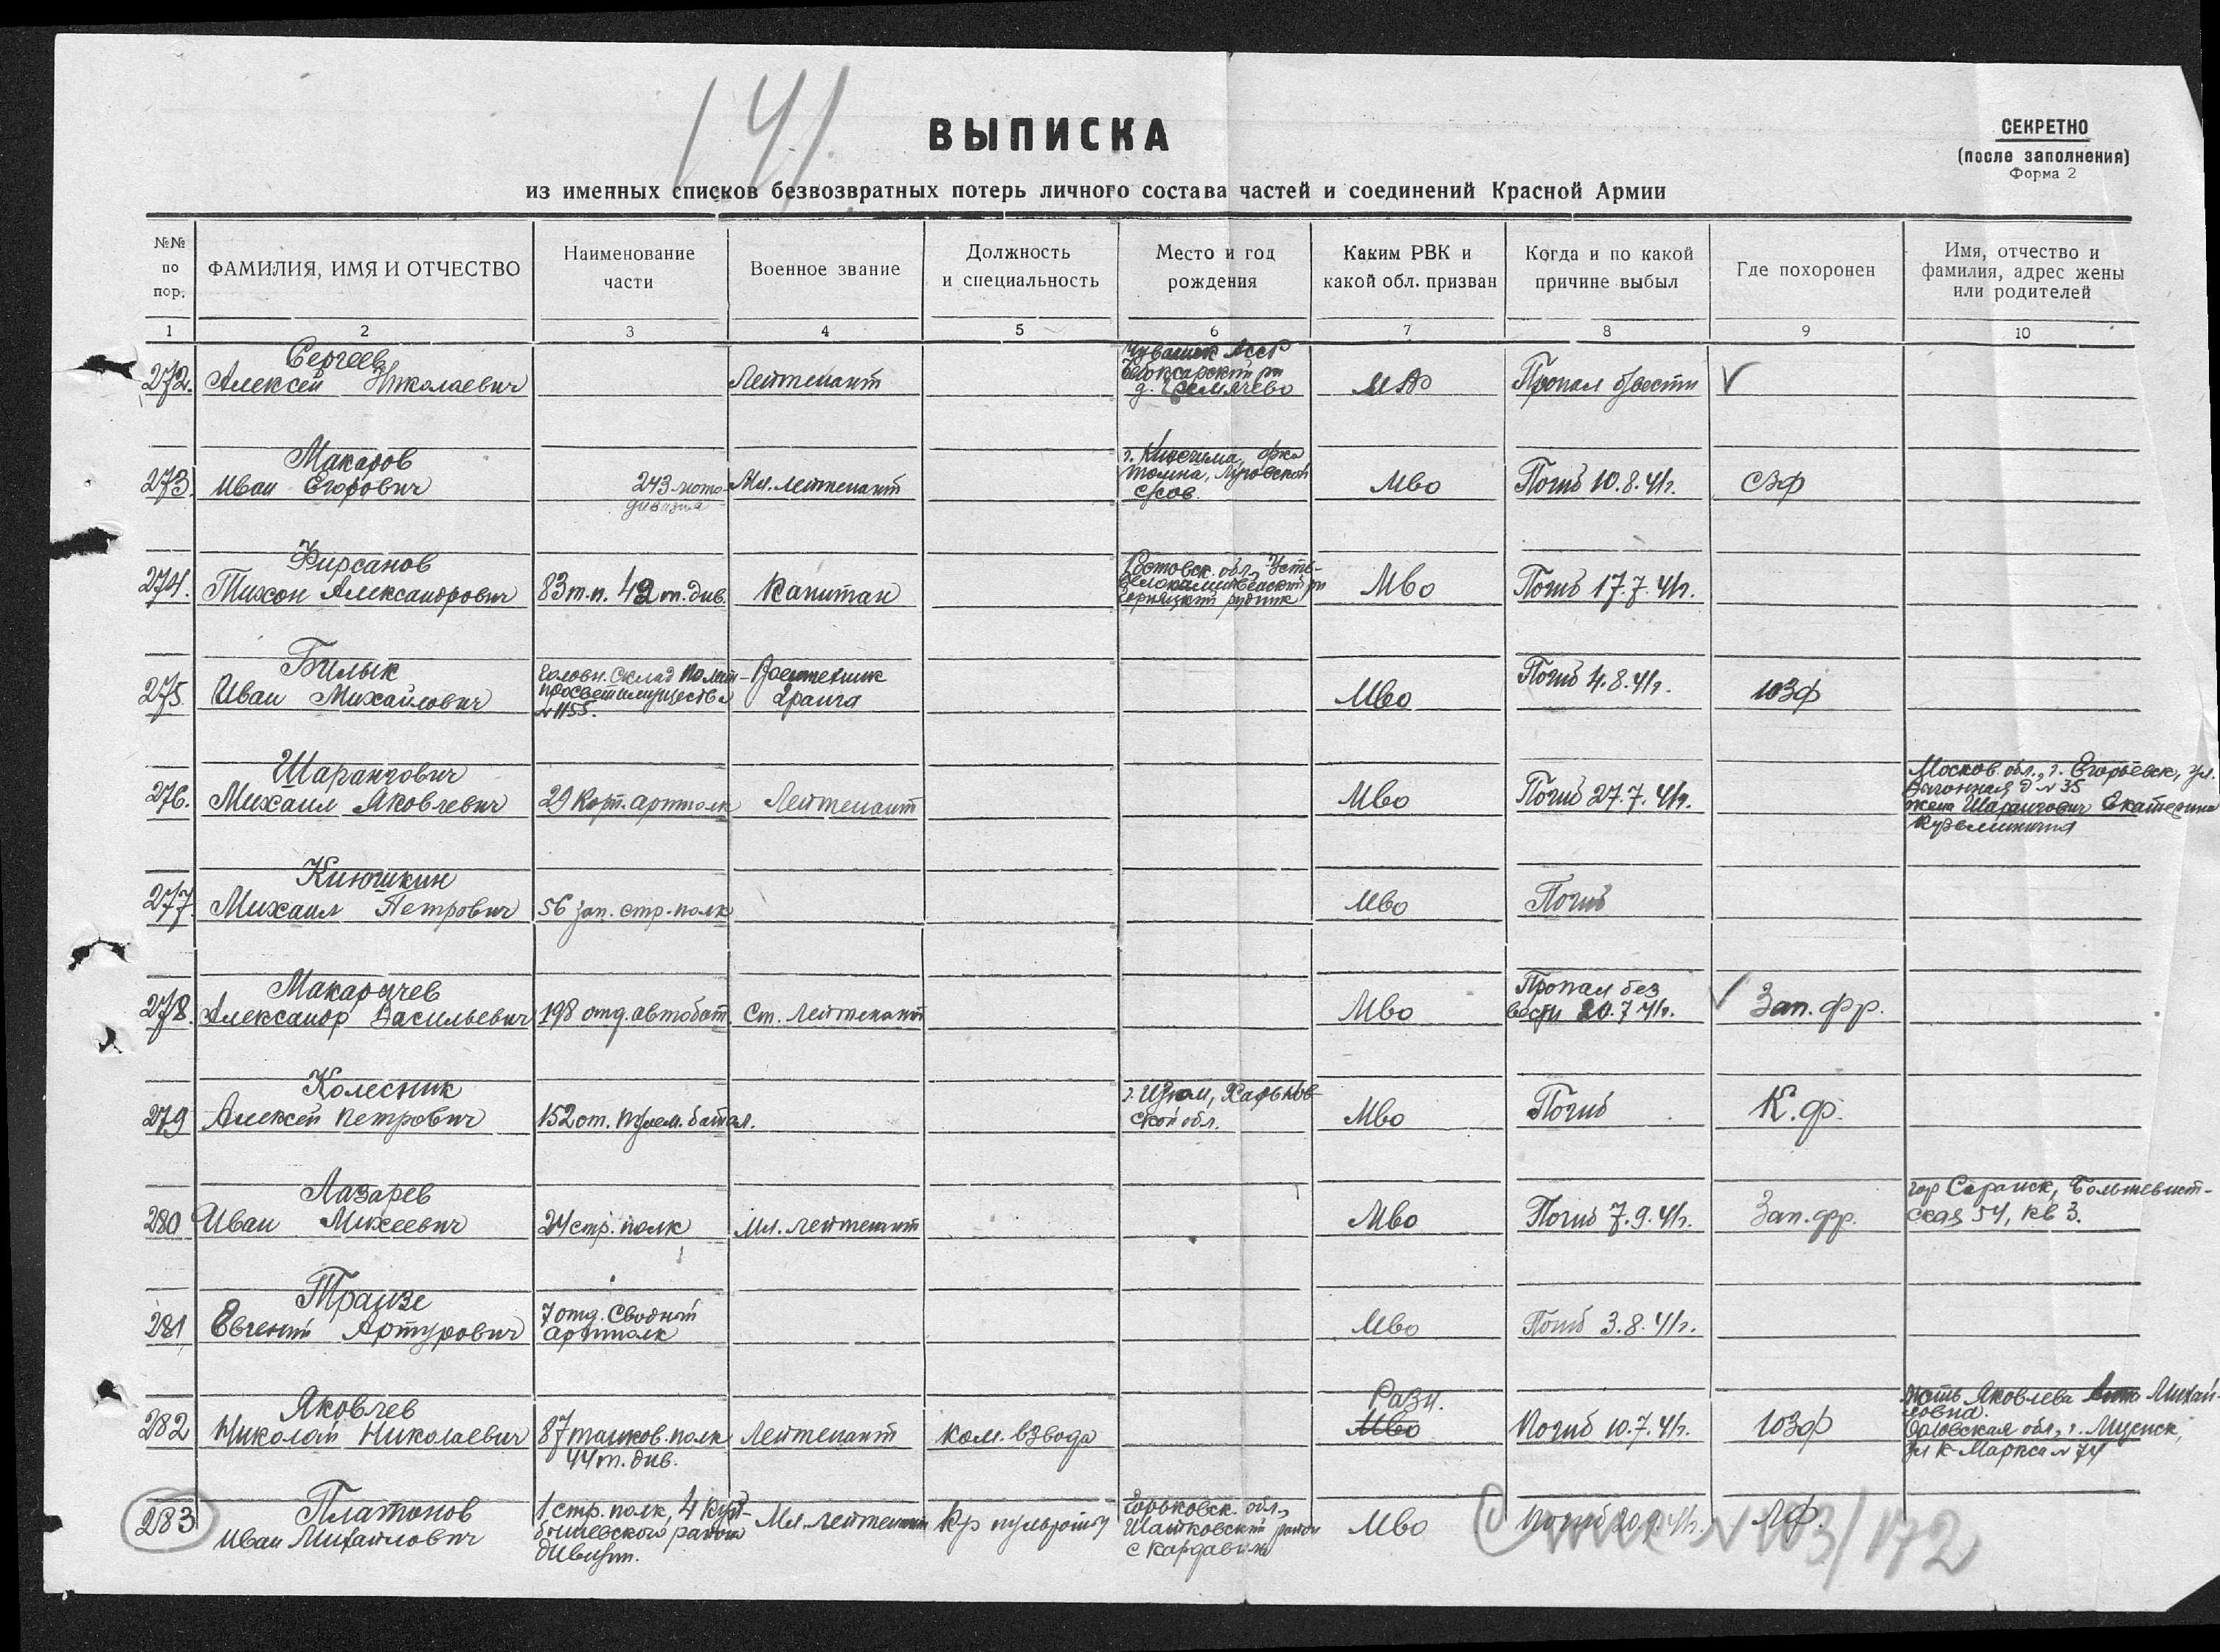 141
ВЫПИСКА
СЕКРЕТНО
(после заполнения)
Форма 2
из именных списков безвозвратных потерь личного состава частей и соединений Красной Армии
№№ по пор.
ФАМИЛИЯ, ИМЯ И ОТЧЕСТВО
Наименование части
Военное звание
Должность и специальность
Место и год рождения
Каким РВК и какой обл. призван
Когда и по какой причине выбыл
Где похоронен
Имя, отчество и фамилия, адрес жены или родителей
1 2 3 4 5 6 7 8 9 10
Сергеев
272. Алексей Николаевич
Лейтенант
Чувашск АССР
д. Гремячево
Пропал б/вести
Макаров
273. Иван Егорович
243 мото-
дивизия
Мл. лейтенант
г. Кинешма, ф-ка
Томна,
Мво
Погиб 10.8.41г.
СЗФ
Фирсанов
274. Тихон Александрович
83 т.п. 42 т. див.
Капитан
Ростовск. обл., Усть-
рудник
Мво
Погиб 17.7.41г.
Билык
275. Иван Михайлович
Головн. склад полит-
просветимущества
№1155.
Воентехник
2 ранга
Мво
Погиб 4.8.41г.
ЮЗФ
Шарангович
276. Михаил Яковлевич
29 корп. артполк
Лейтенант
Мво
Погиб 27.7.41г.
Москов. обл., г. Егорьевск, ул.
д №35
жена Шарангович Екатерина
Кузьминична
Кнюшкин
277. Михаил Петрович
56 зап. стр. полк
Мво
Погиб
Макарычев
278. Александр Васильевич
198 отд. автобат.
Ст. лейтенант
Мво
Пропал без
вести 20.7.41г.
Зап. фр.
Колесник
279 Алексей Петрович
152 от. батал.
г. Изюм, Харьков-
ской обл.
Мво
Погиб
К. ф.
Лазарев
280 Иван Михеевич
24 стр. полк
Мл. лейтенант
Мво
Погиб 7.9.41г.
Зап. фр.
гор Саранск, Большевист-
ская 54, кв 3.
Траизе
281 Евгений Артурович
7 отд. сводный
артполк
Мво
Погиб 3.8.41г.
Яковлев
282 Николай Николаевич
87 танков. полк
44 т. див.
Лейтенант
ком. взвода
Разн.
Мво
Погиб 10.7.41г.
ЮЗФ
мать Яковлева Анна Михай-
ловна.
Орловская обл., г. Мценск,
ул К-Маркса №74
Платонов
283 Иван Михайлович
1 стр. полк, 4 Куй-
бышевского района
дивизии.
Мл. лейтенант
к-р пульроты
Горьковск. обл.,
Шатковский район
с Кардавиль
Мво
Погиб 20.9.41г.
ЛФ.
№ 103/172